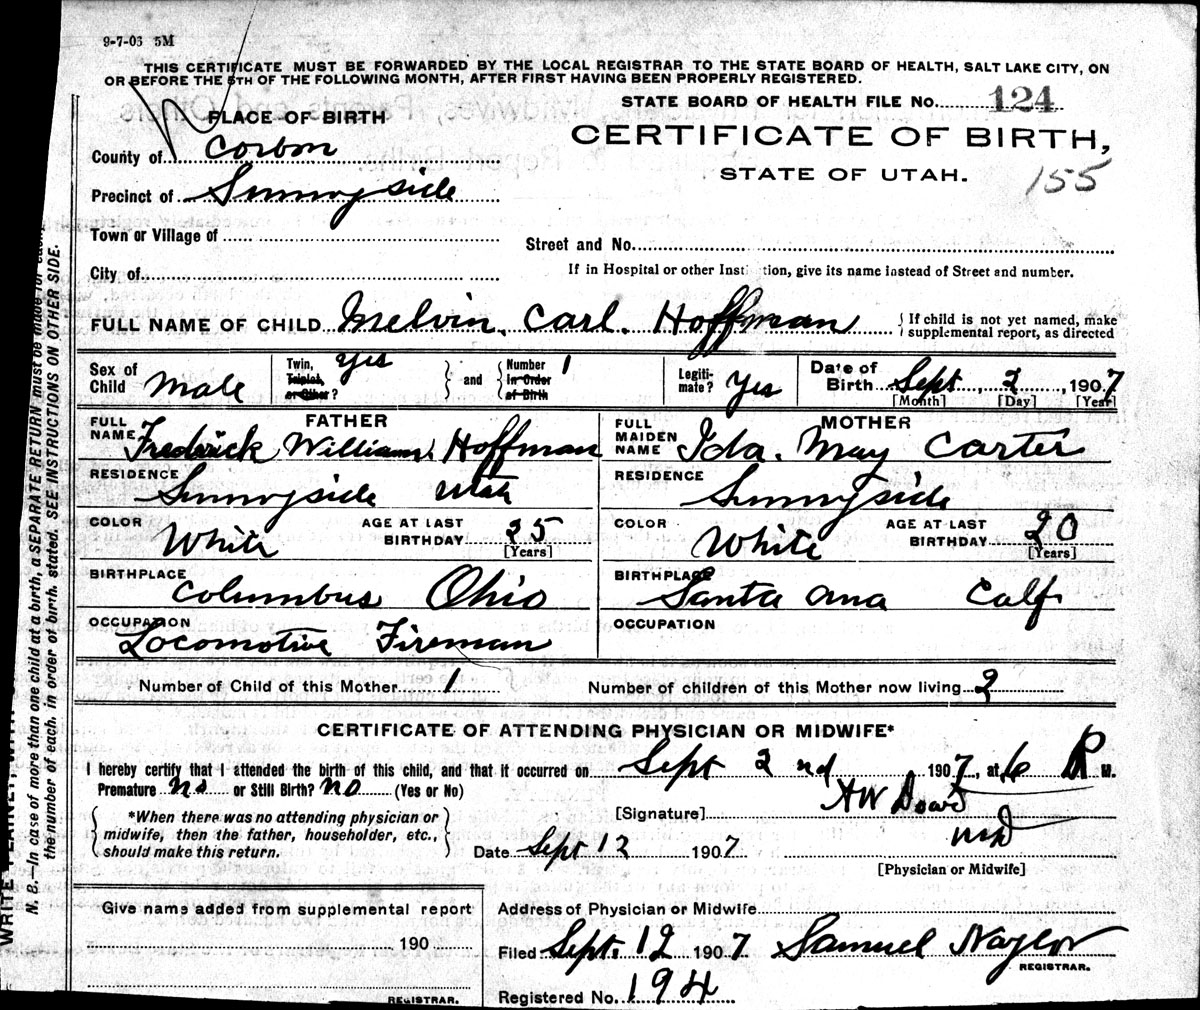 9-7-06 5M
THIS CERTIFICATE MUST BE FORWARDED BY THE LOCAL REGISTRAR TO THE STATE BOARD OF HEALTH, SALT LAKE CITY, ON
OR BEFORE THE 5TH OF THE FOLLOWING MONTH, AFTER FIRST HAVING BEEN PROPERLY REGISTERED.
STATE BOARD OF HEALTH FILE No. 124
PLACE OF BIRTH
CERTIFICATE OF BIRTH,
County of Corbon
STATE OF UTAH. 155
Precinct of Sunnyside
Town or Village of
Street and No.
City of
If in Hospital or other Inst tion, give its name instead of Street and number.
FULL NAME OF CHILD Melvin. Carl. Hoffman { If child is not yet named, make supplemental report, as directed
Sex of Child Male
Twin, Triplet, or Other? Yes } and { Number in Order of Birth 1
Legiti-mate? Yes
Date of Birth Sept 2, 1907
[Month] [Day] [Year]
FATHER
FULL NAME Fredrick William Hoffman
MOTHER
FULL MAIDEN NAME Ida. May Carter
RESIDENCE Sunnyside Utah
RESIDENCE Sunnyside
COLOR White AGE AT LAST BIRTHDAY 25 [Years]
COLOR White AGE AT LAST BIRTHDAY 20 [Years]
BIRTHPLACE Columbus Ohio
BIRTHPLACE Santa Ana Calf
OCCUPATION Locomotive Fireman
OCCUPATION
Number of Child of this Mother 1 Number of children of this Mother now living 2
CERTIFICATE OF ATTENDING PHYSICIAN OR MIDWIFE*
I hereby certify that I attended the birth of this child, and that it occurred on Sept 2 nd 1907, at 6 P M.
Premature no or Still Birth? no (Yes or No)
{ *When there was no attending physician or
midwife, then the father, householder, etc.,
should make this return. }
[Signature] HW Dowd
MD
Date Sept 12 1907
[Physician or Midwife]
Give name added from supplemental report
190
REGISTRAR.
Address of Physician or Midwife
Filed Sept. 12 1907 Samuel Naylor
REGISTRAR.
Registered No. 194
N. B.—In case of more than one child at a birth, a SEPARATE RETURN must be made for each,
the number of each, in order of birth, stated. SEE INSTRUCTIONS ON OTHER SIDE.